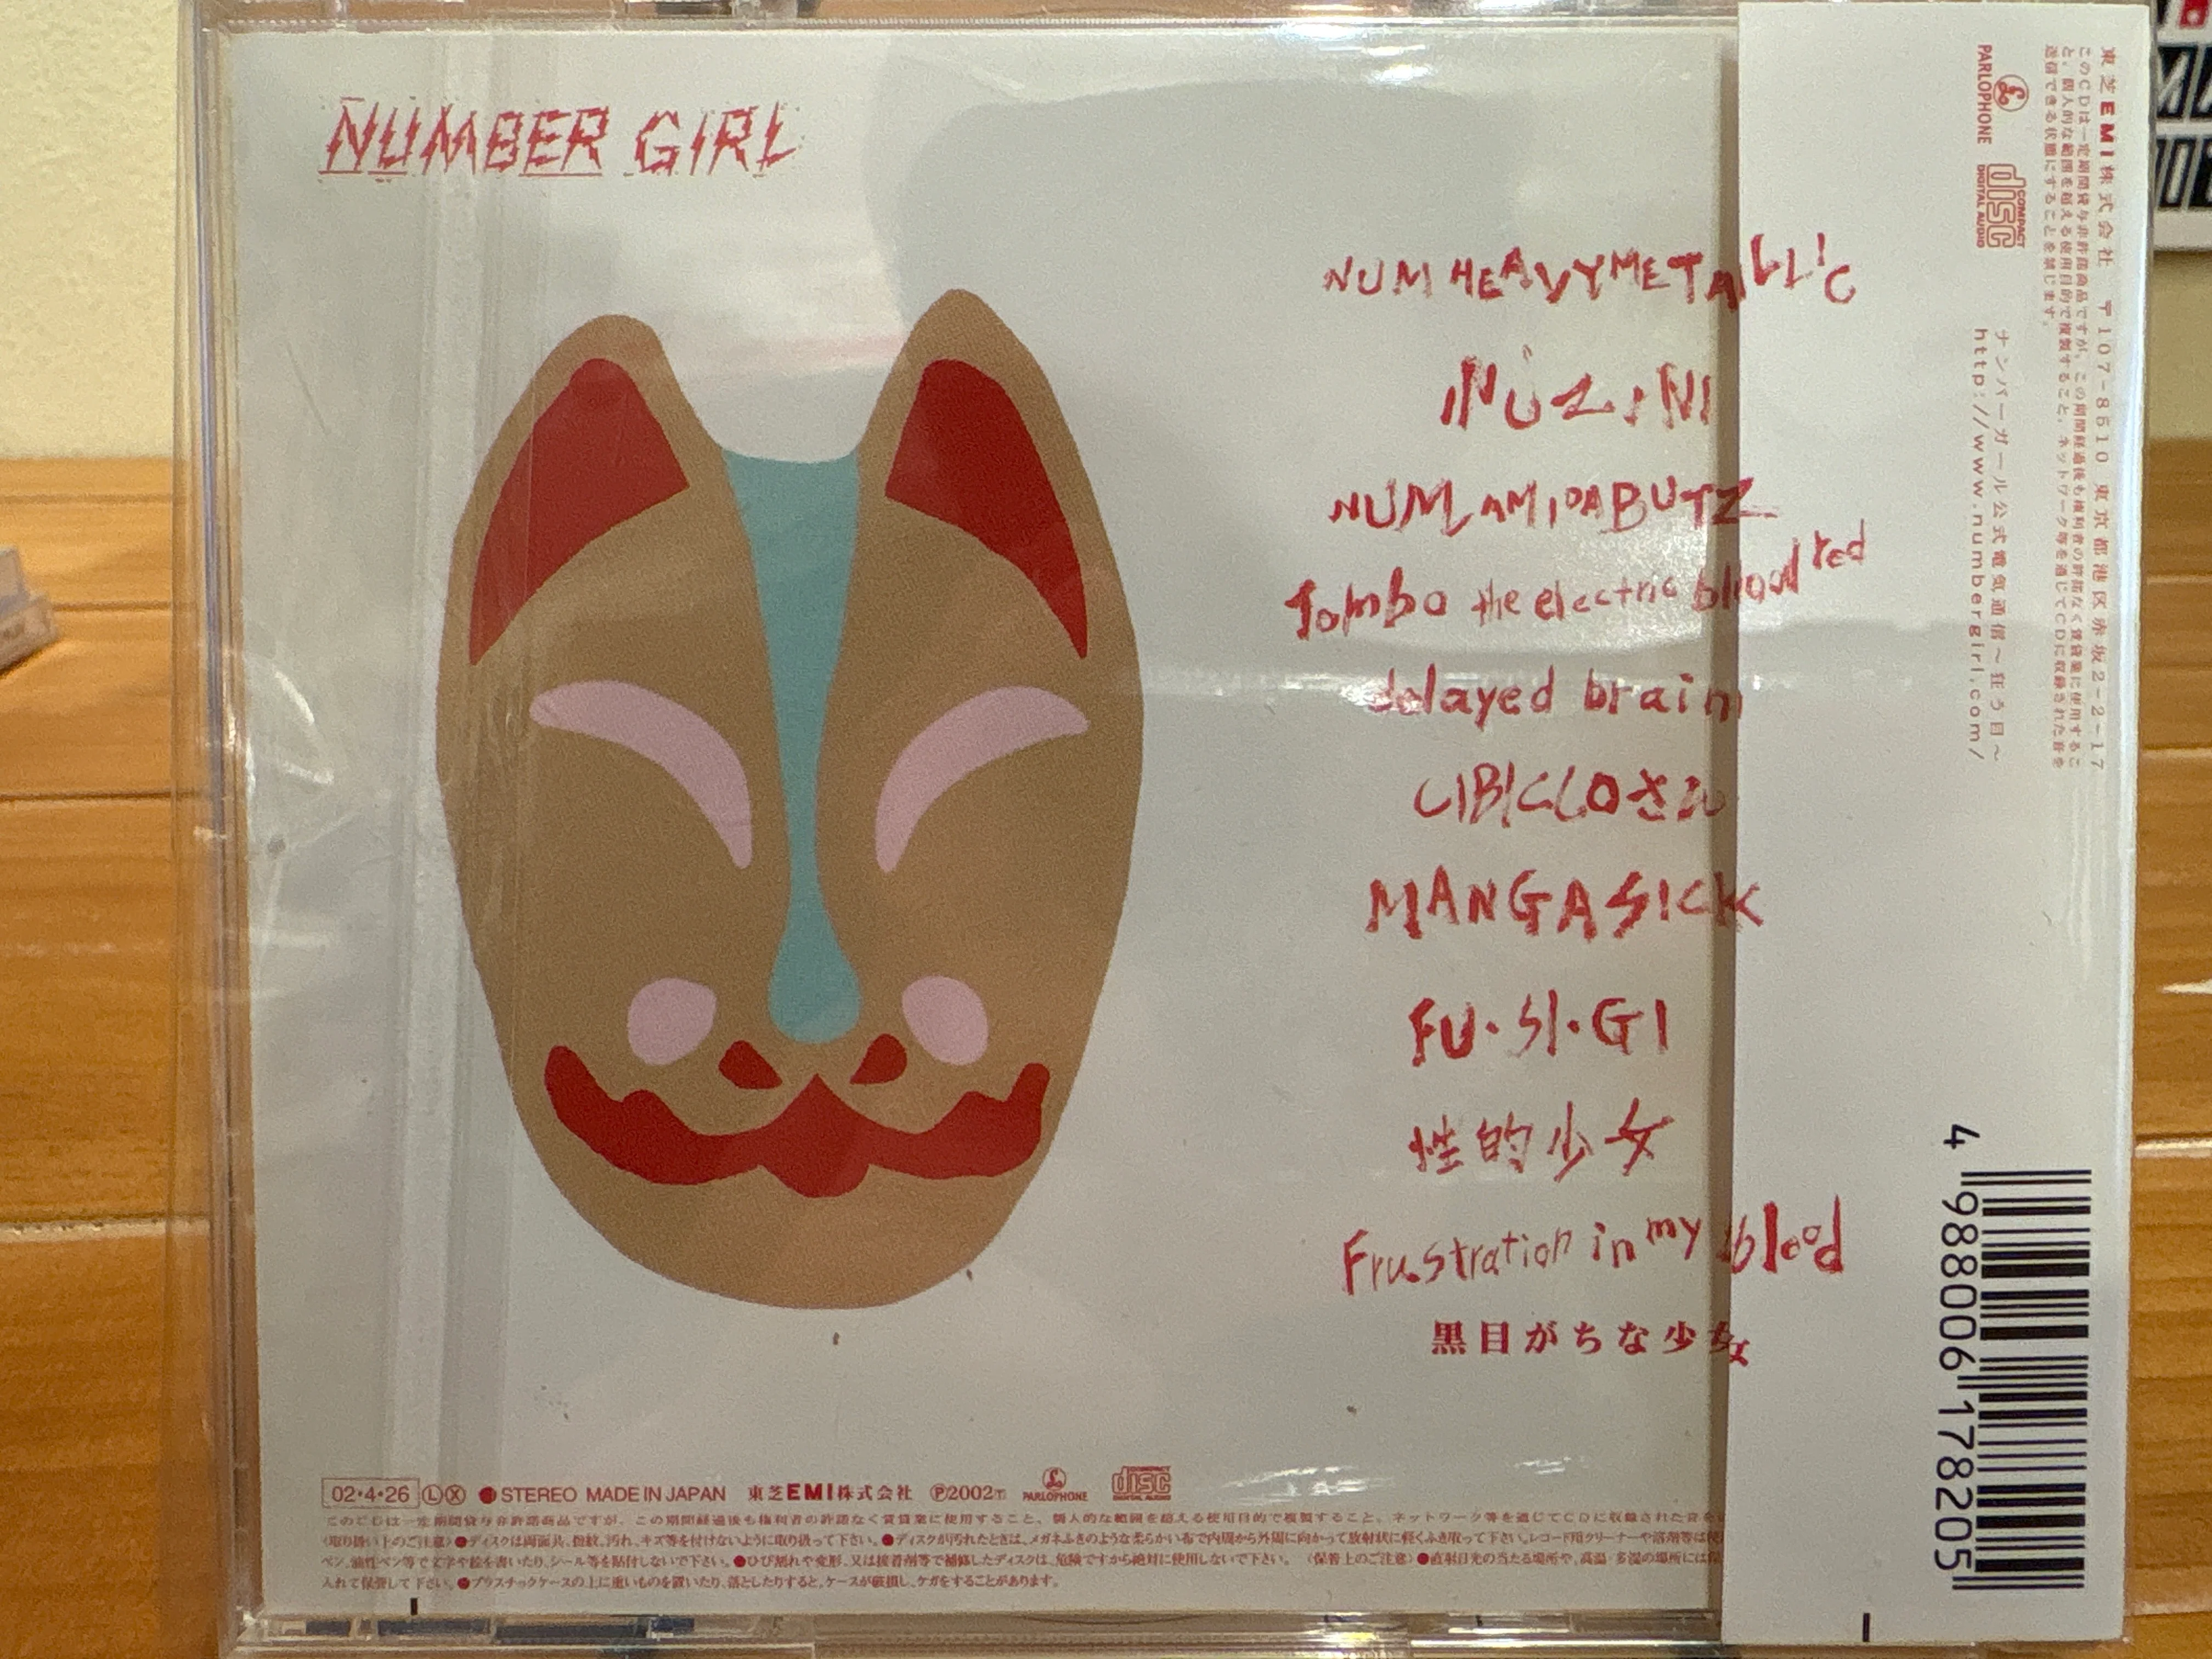 NUMBER GIRL
NUM HEAVYMETALLIC
INUZINI
NUM AMIDABUTZ
Tombo the electric bloodred
delayed brain
CIBICCOさん
MANGASICK
FU・SI・GI
性的少女
Frustration in my blood
黒目がちな少女
02・4・26 L X ●STEREO MADE IN JAPAN 東芝EMI株式会社 Ⓟ2002 PARLOPHONE COMPACT disc DIGITAL AUDIO
このCDは一定期間貸与非許諾商品ですが、この期間経過後も権利者の許諾なく賃貸業に使用すること、個人的な範囲を超える使用目的で複製すること、ネットワーク等を通じてCDに収録された音を
〈取り扱い上のご注意〉●ディスクは両面共、指紋、汚れ、キズ等を付けないように取り扱って下さい。●ディスクが汚れたときは、メガネふきのような柔らかい布で内周から外周に向かって放射状に軽くふき取って下さい。レコード用クリーナーや溶剤等は使
ペン、油性ペン等で文字や絵を書いたり、シール等を貼付しないで下さい。●ひび割れや変形、又は接着剤等で補修したディスクは、危険ですから絶対に使用しないで下さい。〈保管上のご注意〉●直射日光の当たる場所や、高温・多湿の場所には保
入れて保管して下さい。●プラスチックケースの上に重いものを置いたり、落としたりすると、ケースが破損し、ケガをすることがあります。
東芝EMI株式会社 〒107-8510 東京都港区赤坂2-2-17
このCDは一定期間貸与非許諾商品ですが、この期間経過後も権利者の許諾なく賃貸業に使用するこ
と、個人的な範囲を超える使用目的で複製すること、ネットワーク等を通じてCDに収録された音を
送信できる状態にすることを禁じます。
PARLOPHONE COMPACT disc DIGITAL AUDIO
ナンバーガール公式電気通信～狂う目～
http://www.numbergirl.com/
4 988006 178205